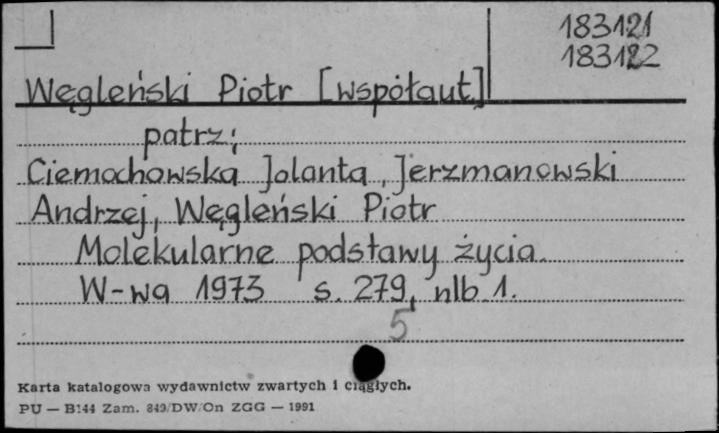 183121
183122
Węgleński Piotr [współaut.]
patrz:
Ciemochowska Jolanta, Jerzmanowski
Andrzej, Węgleński Piotr
Molekularne podstawy życia.
W-wa 1973 s. 279, nlb 1.
5
Karta katalogowa wydawnictw zwartych i ciągłych.
PU — B144 Zam. 849/DW/On ZGG — 1991